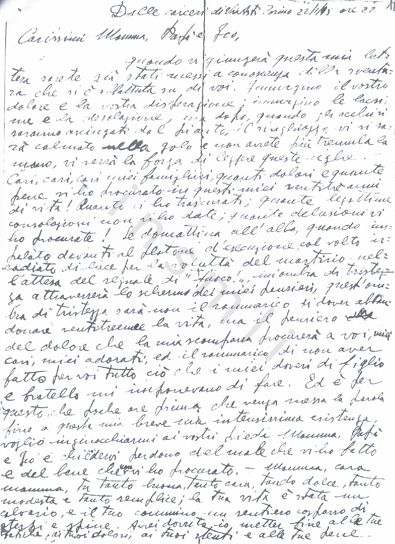 Dalle carceri di Torino 22/1/45 ore 22
Carissimi Mamma, Papà e Ico,
quando vi giungerà questa mia let-
tera sarete già stati messi a conoscenza della sventu-
ra che si è abbattuta su di voi. Immagino il vostro
dolore e la vostra disperazione; immagino le lacri-
me e la desolazione, ma dopo, quando gli occhi si
saranno asciugati dal pianto, il
rà calmato nella gola e non avrete più tremula la
mano, vi verrà la forza di leggere queste righe. -
Cari, cari, cari miei famigliari, quanti dolori e quante
pene vi ho procurato in questi miei ventitré anni
di vita! Quanto vi ho trascurati; quante legittime
consolazioni non vi ho date; quante delusioni vi
ho procurate! Se domattina all'alba, quando im-
palato davanti al plotone di esecuzione, col volto ir-
radiato di luce per la voluttà del martirio, nel-
l'attesa del segnale di "fuoco", un'ombra di tristez-
za attraverserà lo schermo dei miei pensieri, quest'om-
bra di tristezza sarà non il rammarico di dover abban-
donare ventitreenne la vita, ma il pensiero
del dolore che la mia scomparsa procurerà a voi, miei
cari, miei adorati, ed il rammarico di non aver
fatto per voi tutto ciò che i miei doveri di figlio
e fratello mi imponevano di fare. Ed è per
questo che poche ore prima che venga messa la parola
fine a questa mia breve ma intensissima esistenza,
voglio inginocchiarmi ai vostri piedi Mamma, Papà
e Ico e chiedervi perdono del male che vi ho fatto
e del bene che non vi ho procurato. - Mamma, cara
mamma, tu tanto buona, tanto cara, tanto dolce, tanto
modesta e tanto semplice; la tua vita è stata un
calvario, e il tuo cammino un sentiero cosparso di
sterpi e spine. Avrei dovuto io, metter fine alle tue
ai tuoi dolori, ai tuoi stenti e alle tue pene..